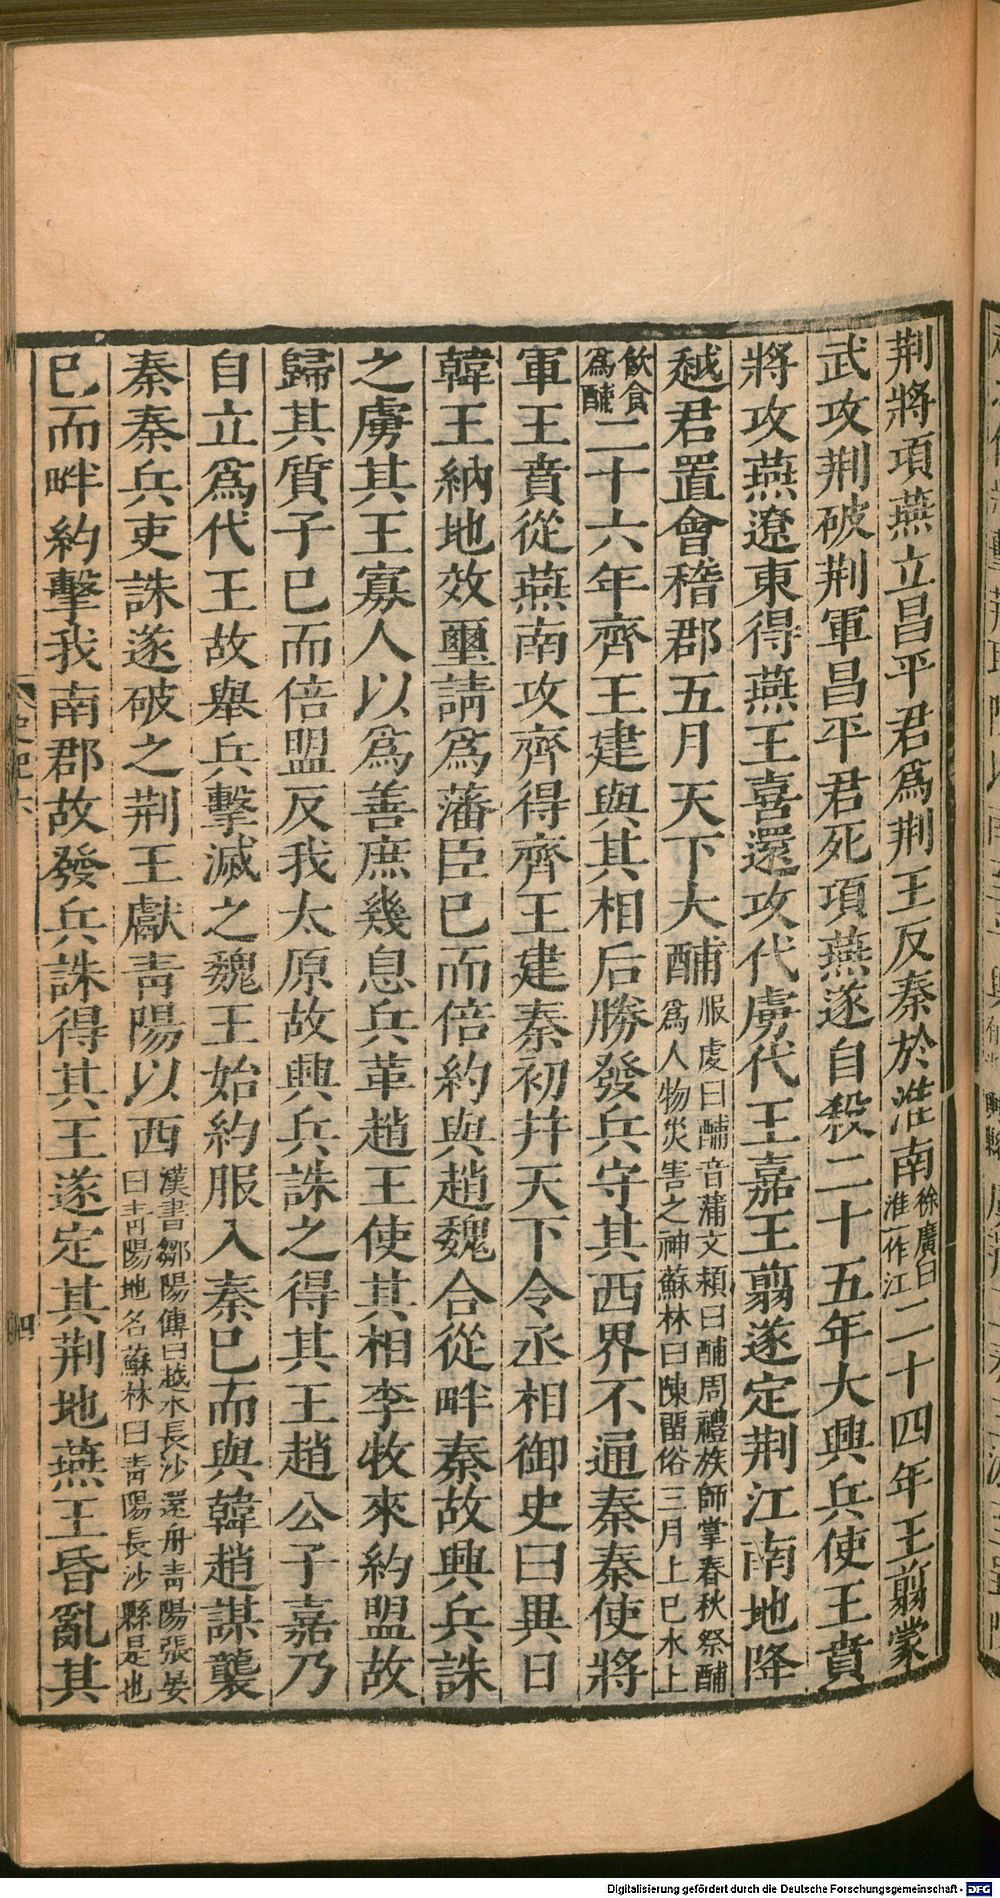 荆將項燕立昌平君爲荆王反秦於淮南徐廣曰淮一作江二十四年王翦蒙
武攻荆破荆軍昌平君死項燕遂自殺二十五年大興兵使王賁
將攻燕遼東得燕王喜還攻代虜代王嘉王翦遂定荆江南地降
越君置會稽郡五月天下大酺服虔曰酺音蒲文穎曰酺周禮族師掌春秋祭酺爲人物烖害之神蘇林曰陳畱俗三月上巳水上
飲食爲酺二十六年齊王建與其相后勝發兵守其西界不通秦秦使將
軍王賁從燕南攻齊得齊王建秦初并天下令丞相御史曰異日
韓王納地效璽請爲藩臣已而倍約與趙魏合從畔秦故興兵誅
之虜其王寡人以爲善庶幾息兵革趙王使其相李牧來約盟故
歸其質子已而倍盟反我太原故興兵誅之得其王趙公子嘉乃
自立爲代王故舉兵擊滅之魏王始約服入秦已而與韓趙謀襲
秦秦兵吏誅遂破之荆王獻靑陽以西漢書鄒陽傳曰越水長沙還舟靑陽張晏曰靑陽地名蘇林曰靑陽長沙縣是也
已而畔約擊我南郡故發兵誅得其王遂定其荆地燕王昏亂其
四
Digitalisierung gefördert durch die Deutsche Forschungsgemeinschaft - DFG